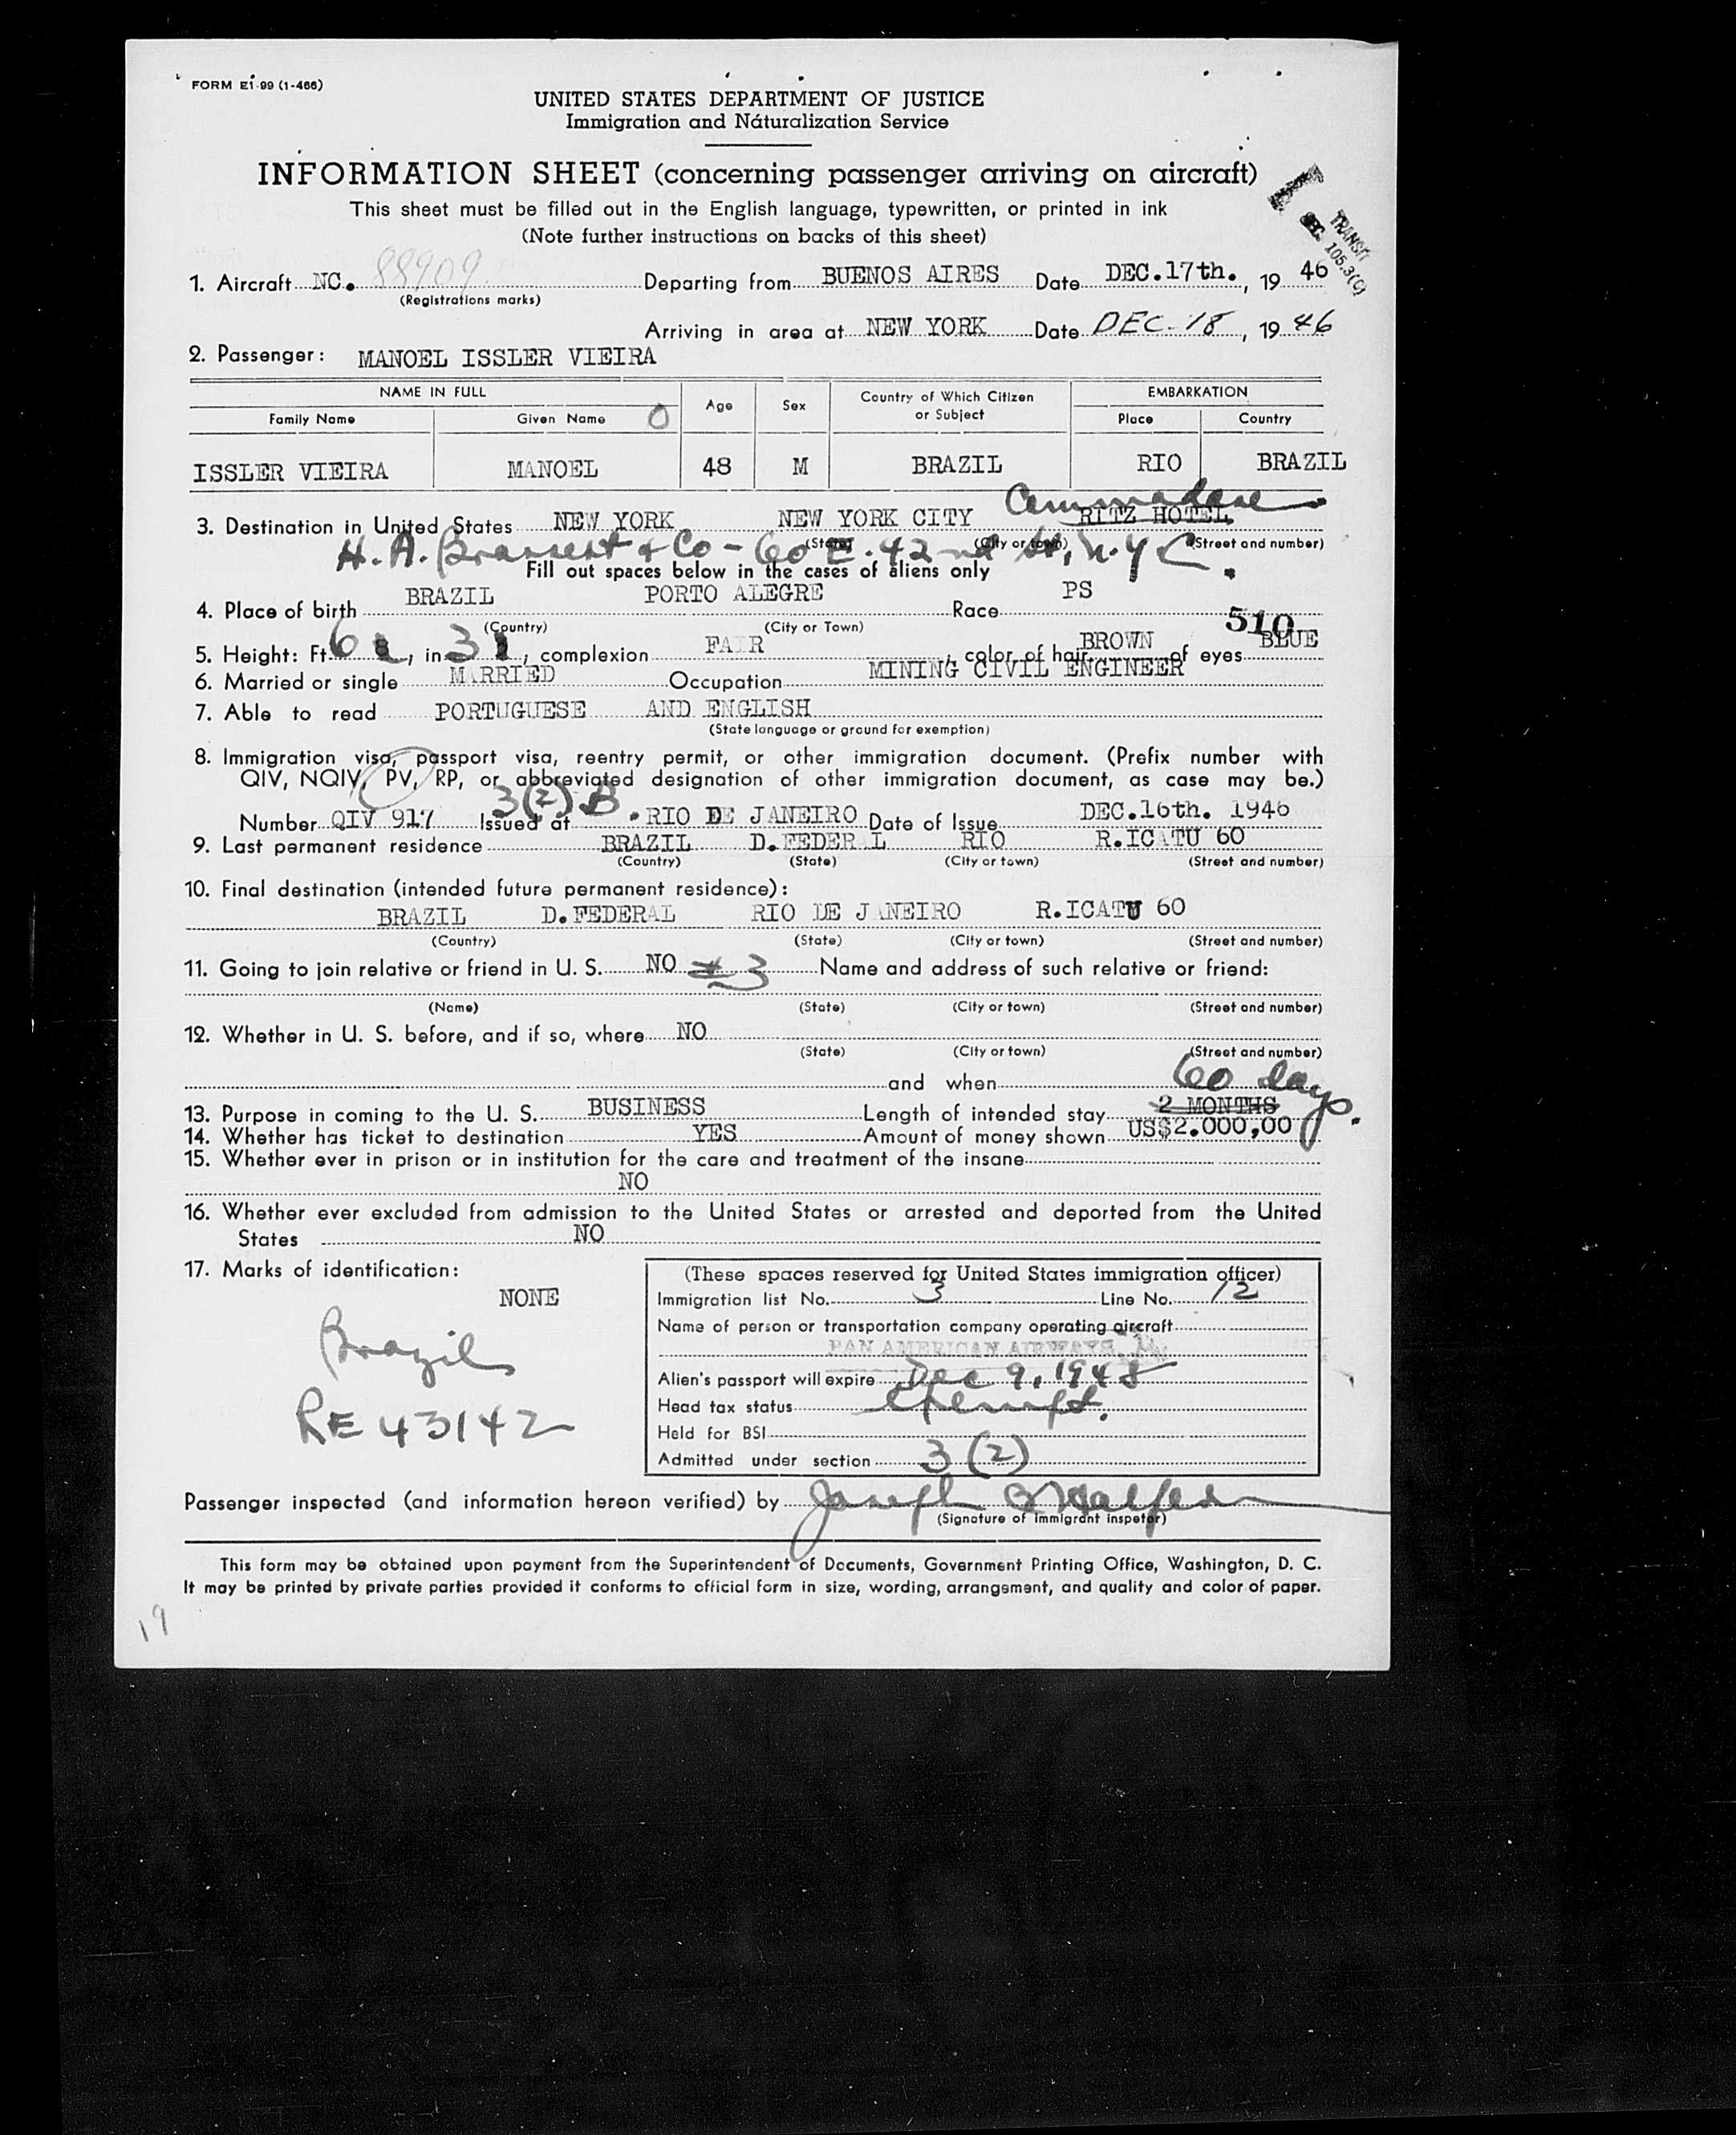 FORM EI-99 (1-466)
UNITED STATES DEPARTMENT OF JUSTICE
Immigration and Naturalization Service
INFORMATION SHEET (concerning passenger arriving on aircraft)
This sheet must be filled out in the English language, typewritten, or printed in ink
(Note further instructions on backs of this sheet)
TRANSIT
SEC. 105.3(C)
1. Aircraft NC. 88909 Departing from BUENOS AIRES Date DEC.17th., 19 46
(Registrations marks)
Arriving in area at NEW YORK Date DEC-18, 19 46
2. Passenger: MANOEL ISSLER VIEIRA
NAME IN FULL Age Sex Country of Which Citizen or Subject EMBARKATION
Family Name Given Name 0 Place Country
ISSLER VIEIRA MANOEL 48 M BRAZIL RIO BRAZIL
Commodore
3. Destination in United States NEW YORK NEW YORK CITY RITZ HOTEL
(State) (City or town) (Street and number)
H. A. Brassert & Co - 60 E. 42nd St, N.Y.C.
Fill out spaces below in the cases of aliens only
4. Place of birth BRAZIL PORTO ALEGRE Race PS
(Country) (City or Town)
510
5. Height: Ft. 6, in. 3, complexion FAIR, color of hair BROWN of eyes BLUE
6. Married or single MARRIED Occupation MINING CIVIL ENGINEER
7. Able to read PORTUGUESE AND ENGLISH
(State language or ground for exemption)
8. Immigration visa, passport visa, reentry permit, or other immigration document. (Prefix number with
QIV, NQIV, PV, RP, or abbreviated designation of other immigration document, as case may be.)
3(2) B
Number QIV 917 Issued at RIO DE JANEIRO Date of Issue DEC.16th. 1946
9. Last permanent residence BRAZIL D.FEDERAL RIO R.ICATU 60
(Country) (State) (City or town) (Street and number)
10. Final destination (intended future permanent residence):
BRAZIL D.FEDERAL RIO DE JANEIRO R.ICATU 60
(Country) (State) (City or town) (Street and number)
11. Going to join relative or friend in U. S. NO # 3 Name and address of such relative or friend:
(Name) (State) (City or town) (Street and number)
12. Whether in U. S. before, and if so, where NO
(State) (City or town) (Street and number)
and when
60 days.
13. Purpose in coming to the U. S. BUSINESS Length of intended stay 2 MONTHS
14. Whether has ticket to destination YES Amount of money shown US$2.000,00
15. Whether ever in prison or in institution for the care and treatment of the insane
NO
16. Whether ever excluded from admission to the United States or arrested and deported from the United
States NO
17. Marks of identification:
NONE
Brazil
RE 43142
(These spaces reserved for United States immigration officer)
Immigration list No. 3 Line No. 12
Name of person or transportation company operating aircraft
PAN AMERICAN AIRWAYS,
Alien's passport will expire Dec 9, 1948
Head tax status Exempt.
Held for BSI
Admitted under section 3 (2)
Passenger inspected (and information hereon verified) by Joseph
(Signature of immigrant inspetor)
This form may be obtained upon payment from the Superintendent of Documents, Government Printing Office, Washington, D. C.
It may be printed by private parties provided it conforms to official form in size, wording, arrangement, and quality and color of paper.
19